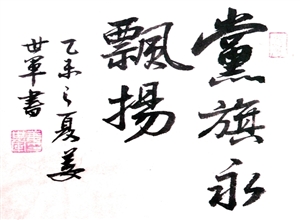 黨旗永
飄揚
乙未之夏姜
世軍書